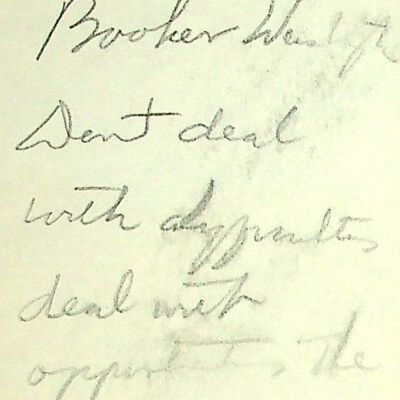 Booker Washgtn
Dont deal
with difficulties
deal with
opportunities the